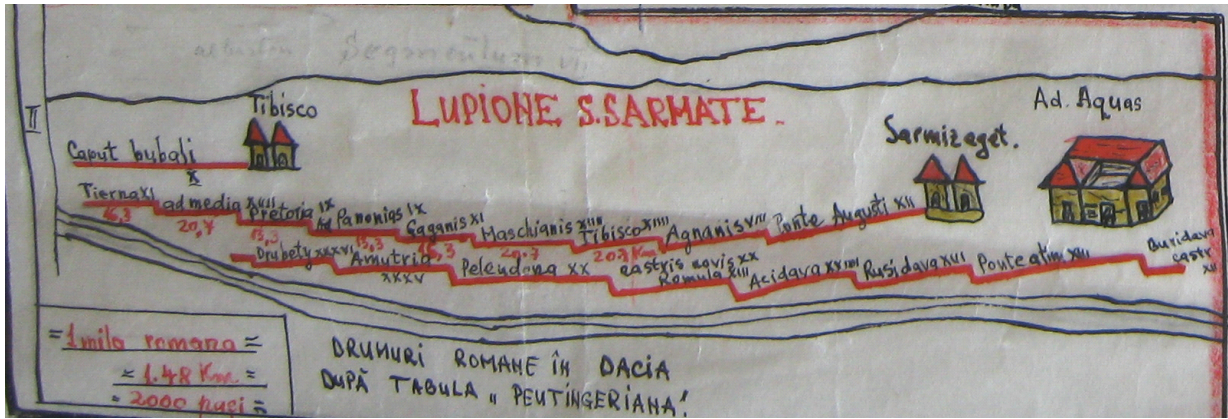 Segmentum VI
II
Tibisco
LUPIONE S.SARMATE.
Ad. Aquas
Sarmizaget.
Caput bubali
X
Tierna XI ad media XIIII Pretoria IX Ad Panonias IX Gaganis XI Maschianis XIIII Tibisco XIIII Agnanis VIII Ponte Augusti XII
16,3 20,7 13,3 13,3 16,3 20,7 20,7 Km
Drubety XXXVI Amutria XXXV Pelendona XX castris novis XX Romula XIII Acidava XXIIII Rusidava XIII Ponte aluti XIII Buridava castr XII
= 1 mila romana =
= 1.48 Km =
= 2000 pași =
DRUMURI ROMANE ÎN DACIA
DUPĂ TABULA „ PEUTINGERIANA!